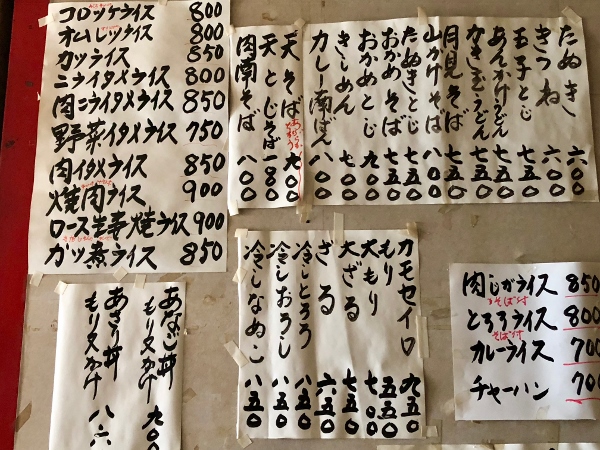 コロッケライス 800
オムレツライス 800
カツライス 850
ニライタメライス 800
肉ニライタメライス 850
野菜イタメライス 750
肉イタメライス 850
焼肉ライス 900
ロース生姜焼ライス 900
カツ煮ライス 850
たぬき 六〇〇
きつね 六〇〇
玉子とじ 七五〇
あんかけうどん 七五〇
かき玉うどん 七五〇
月見そば 七五〇
山かけそば 八〇〇
たぬきとじ 七五〇
おかめそば 七五〇
おかめとじ 九〇〇
きしめん 七〇〇
カレー南ばん 八〇〇
天そば 九〇〇
天とじそば 一八〇〇
肉南そば 八〇〇
カモセイロ 九五〇
もり 五五〇
大もり 七〇〇
大ざる 七五〇
ざる 六五〇
冷しとろろ 八五〇
冷しおろし 八五〇
冷しなめこ 八五〇
肉じがライス 850
そば付
とろろライス 800
そば付
カレーライス 700
チャーハン 700
あなご丼
もり又かけ 九〇〇
あさり丼
もり又かけ 八六